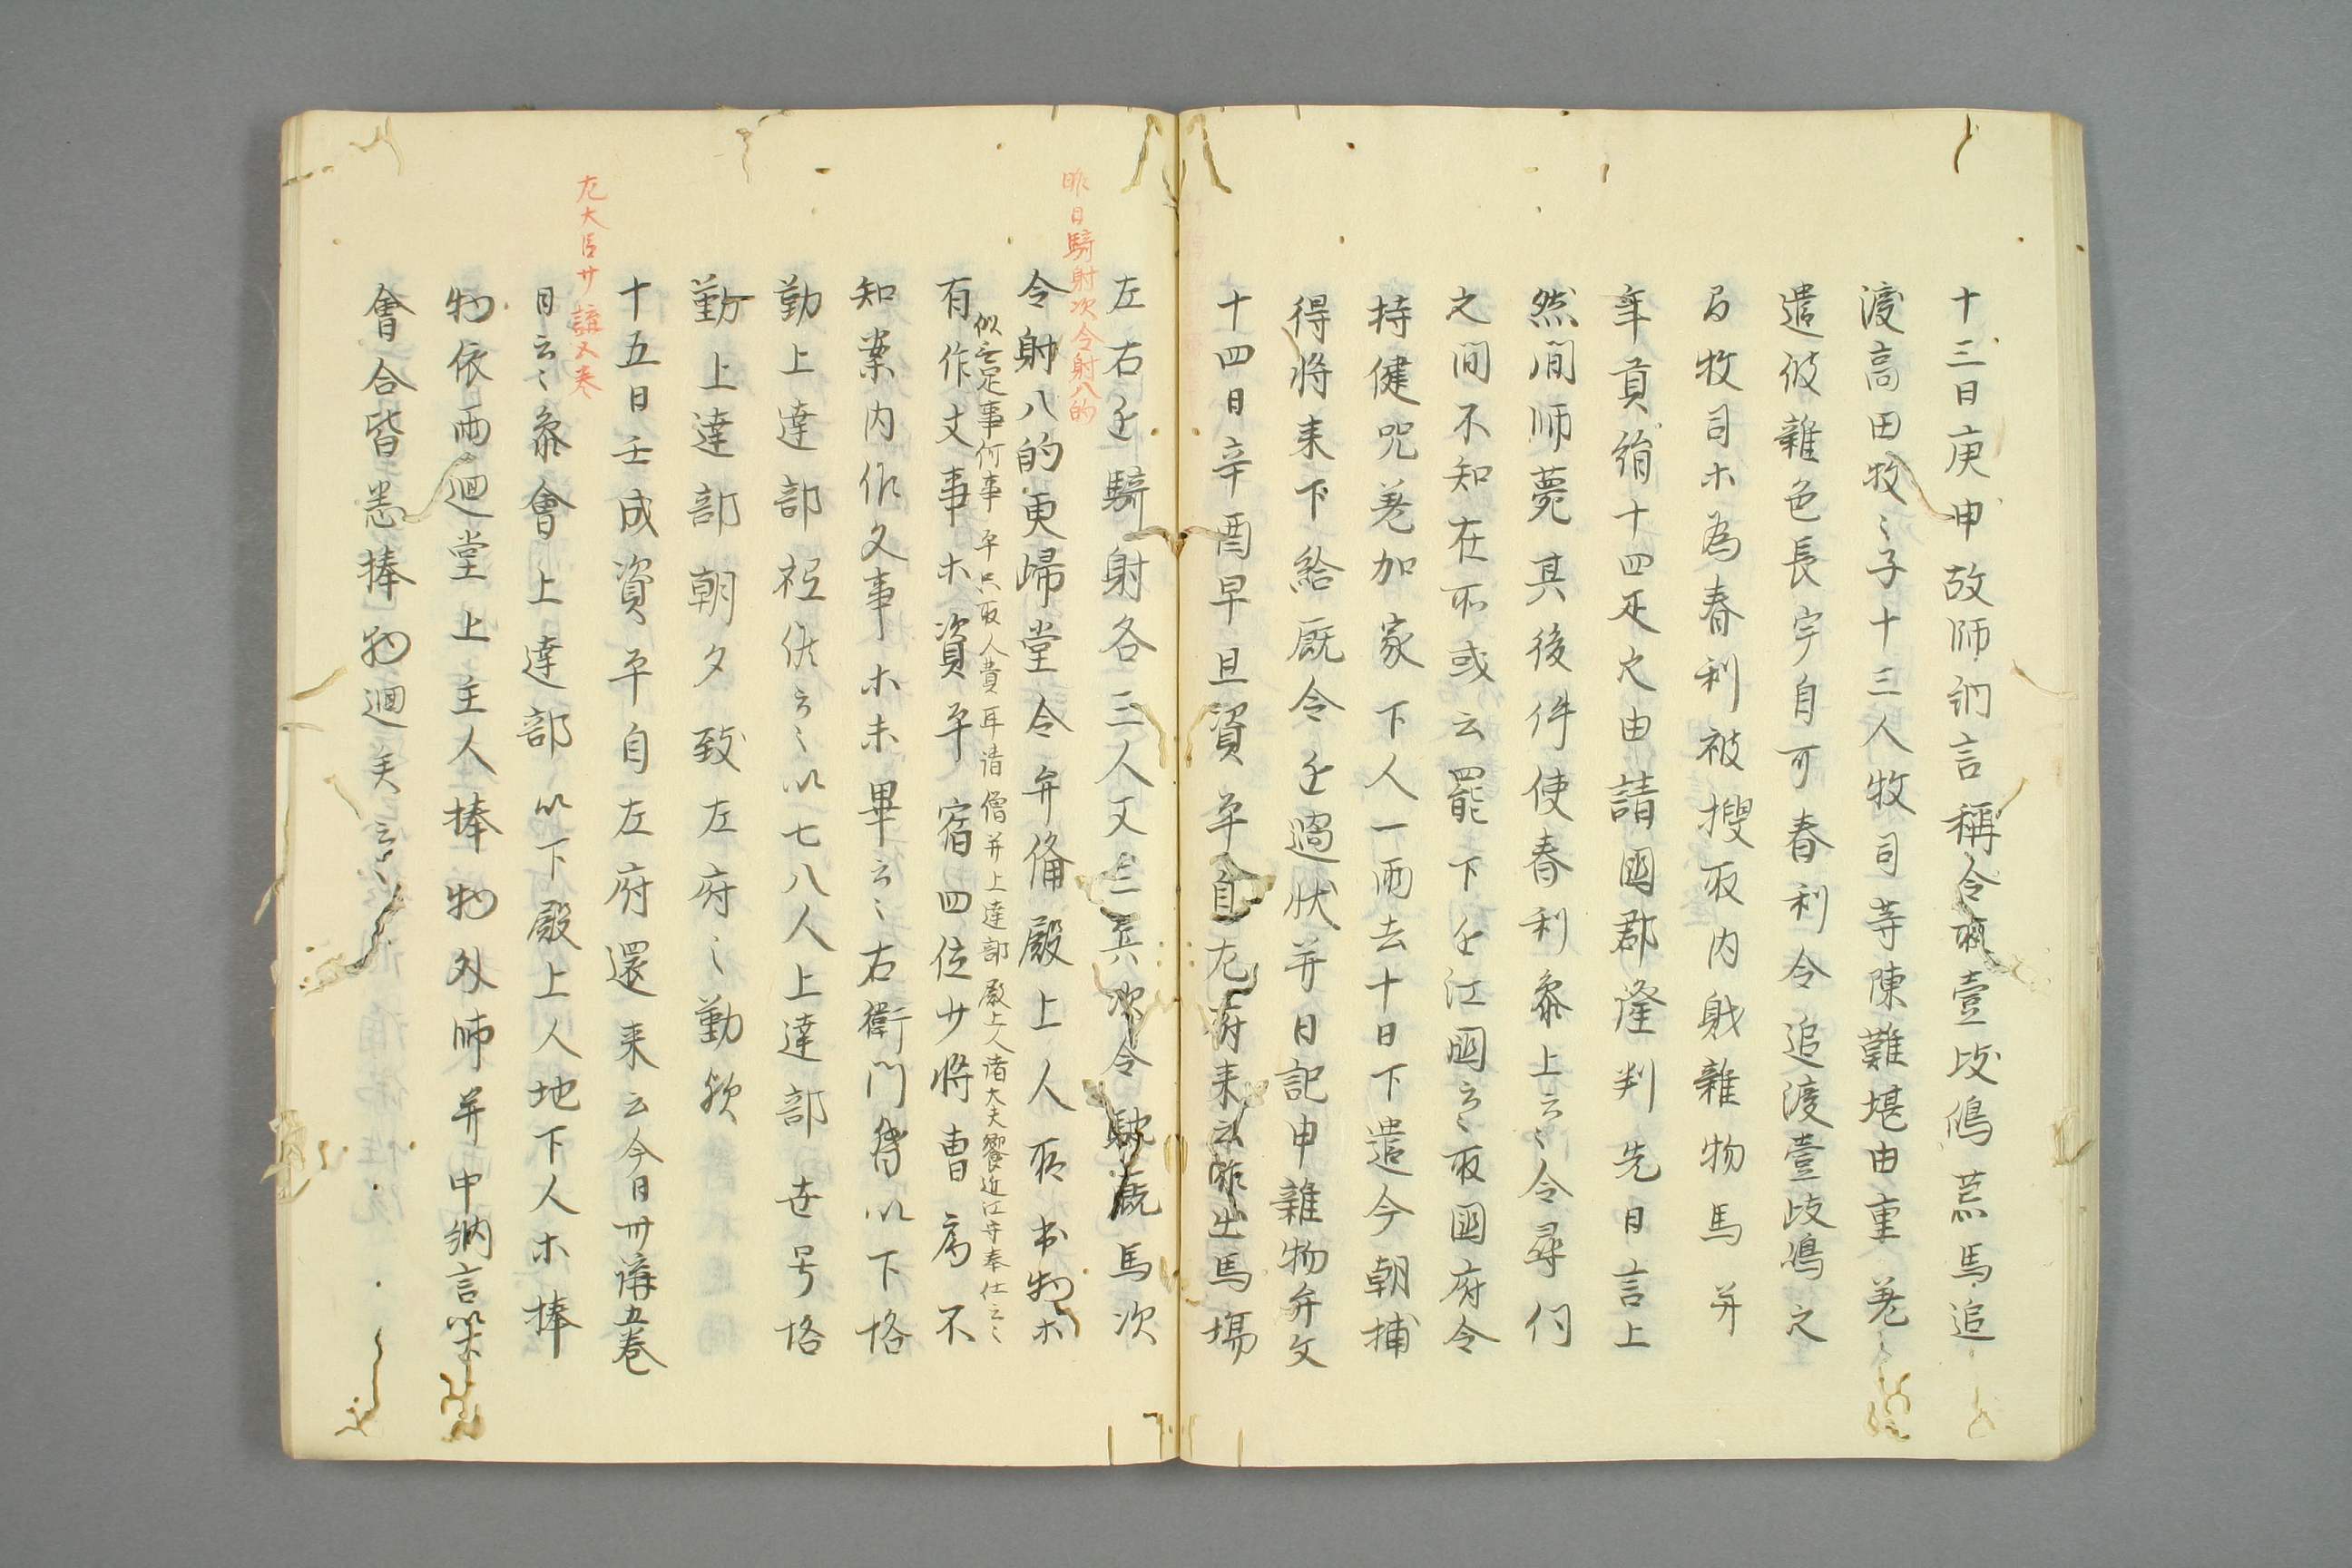 十三日庚申故師納言稱令領壹岐嶋荒馬追
渡高田牧〻子十三人牧司等陳難堪由重差〻
遣彼雜色長宇自可春利令追渡壹岐嶋之
間牧司木為春利被捜取内財雜物馬并
年貢絹十四疋之由請國郡隆判先日言上
然間師薨其後件使春利參上云〻令尋行
之間不知在所或云罷下近江國云〻取國府令
持健咒差加家下人一両去十日下遣今朝捕
得将来下給厩令近過状并日記申雜物弁文
十四日辛酉早旦資平自左府来云昨出馬場
昨日騎射次令射八的
左右近騎射各三人又三兵次令馳厩馬次
令射八的更歸堂令弁備殿上人所書物木
似無定事何事平只取人貴耳請僧并上達部殿上人諸大夫饗近江守奉仕云〻
有作文事木資平宿四位少将曹局不
知案内作文事木未畢云〻右衛門督以下恪
勤上達部祗候云〻以七八人上達部世号恪
勤上達部朝夕致左府〻勤欤
左大臣卅講五巻
十五日壬戌資平自左府還来云今日卅講五巻
日云〻參會上達部〻以下殿上人地下人木捧
物依雨廻堂上主人捧物外師并中納言以下
會合皆悉捧物廻矣云〻